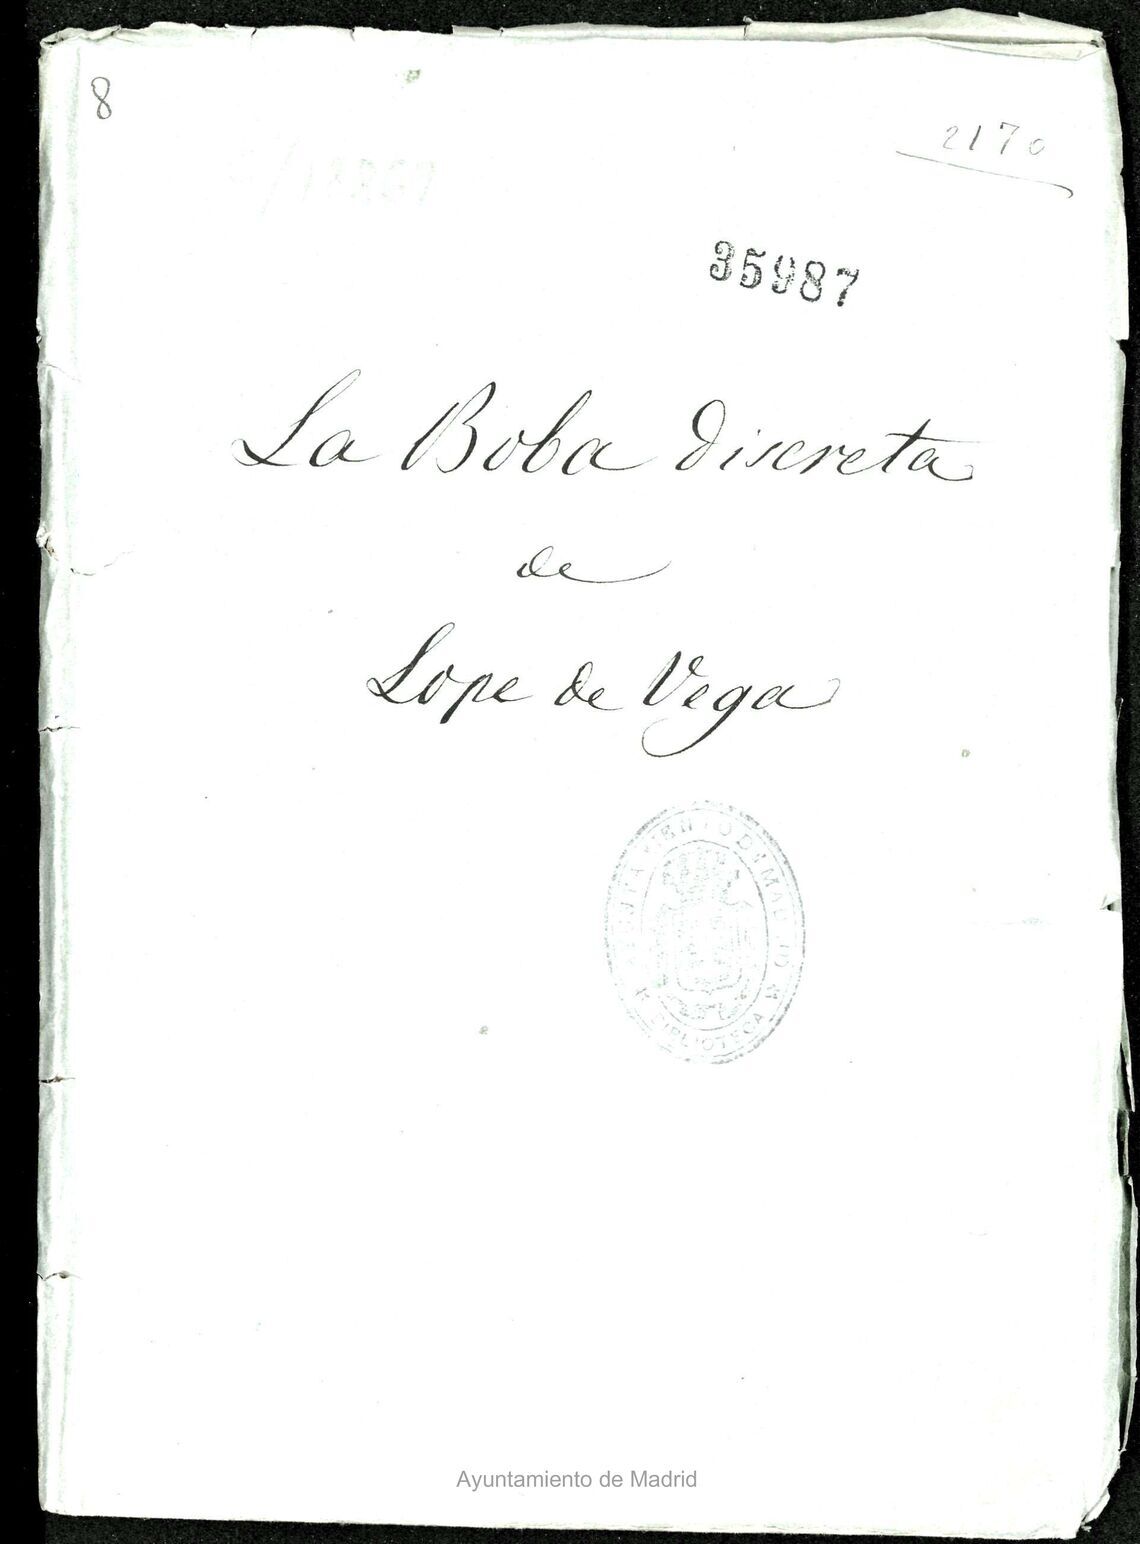 8
2170
35987
La Boba discreta
de
Lope de Vega
AYUNTAMIENTO DE MADRID
BIBLIOTECA
Ayuntamiento de Madrid